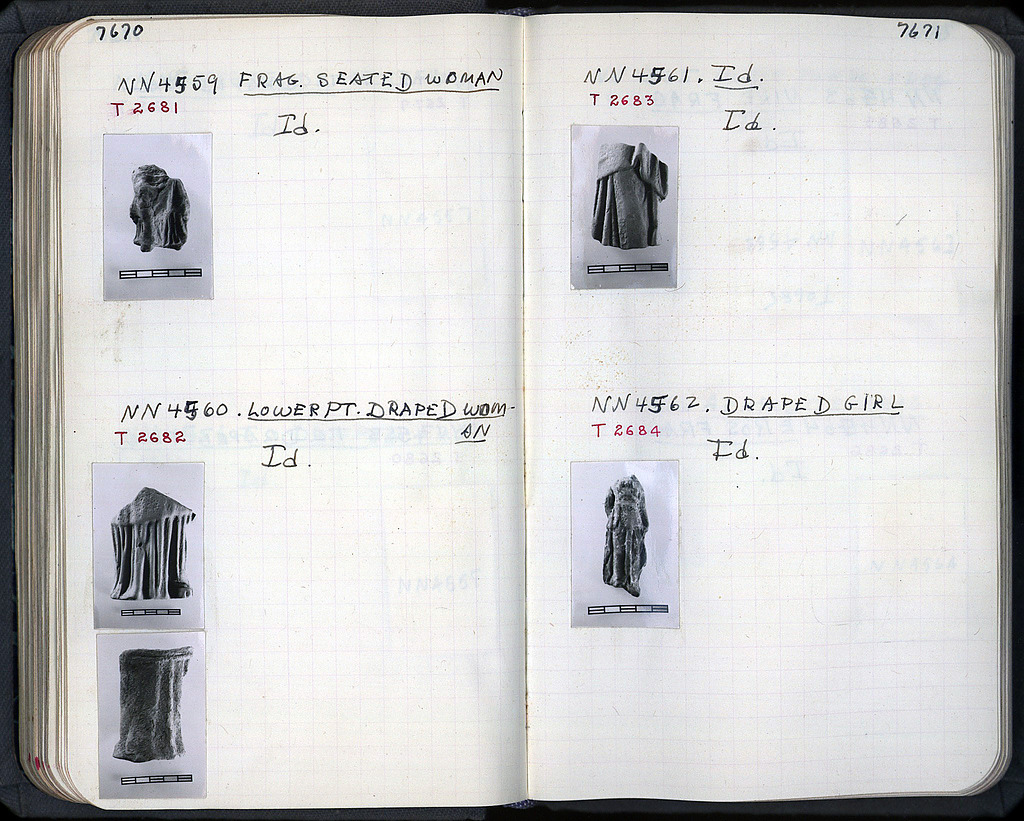 7670
NN4559 FRAG. SEATED WOMAN
T 2681
Id.
NN4560. LOWER PT. DRAPED WOM-
AN
T 2682
Id.
7671
NN4561. Id.
T 2683
Id.
NN4562. DRAPED GIRL
T 2684
Id.